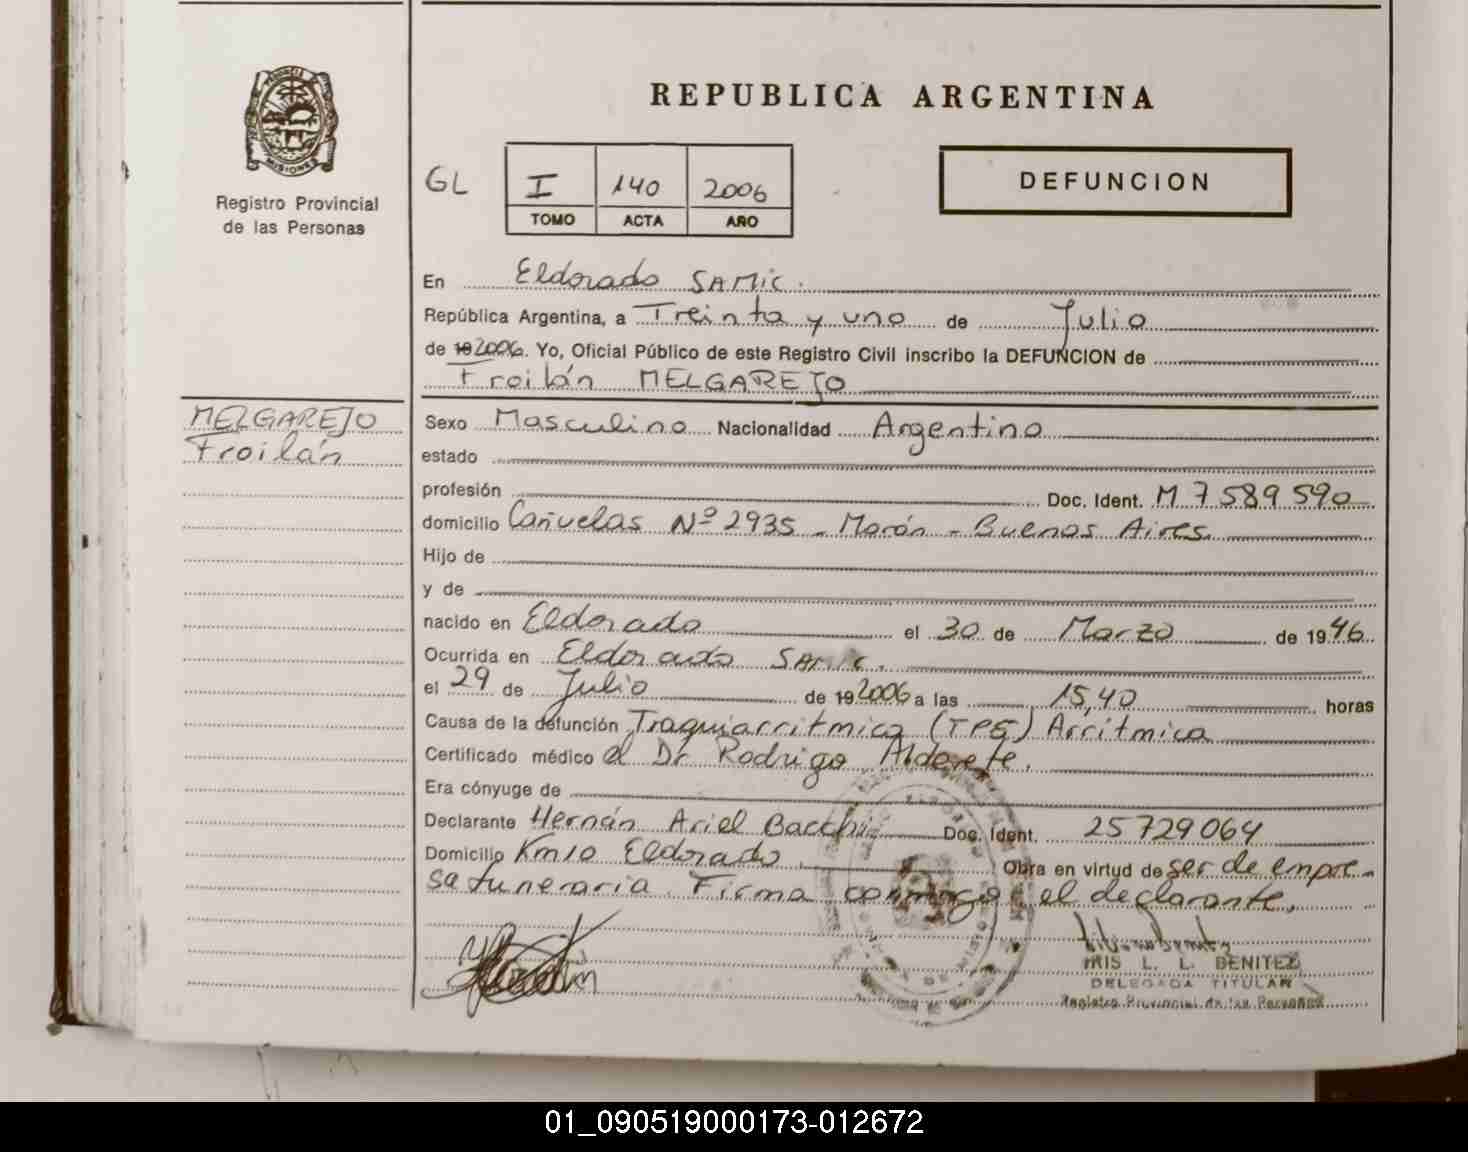 REPUBLICA ARGENTINA
MISIONES
Registro Provincial
de las Personas
GL
I 140 2006
TOMO ACTA AÑO
DEFUNCION
En Eldorado SAMIC.
República Argentina, a Treinta y uno de Julio
de 19 2006. Yo, Oficial Público de este Registro Civil inscribo la DEFUNCION de
Froilán MELGAREJO
MELGAREJO
Froilán
Sexo Masculino Nacionalidad Argentino
estado
profesión Doc. Ident. M 7589590
domicilio Cañuelas Nº 2935 - Morón - Buenos Aires.
Hijo de
y de
nacido en Eldorado el 30 de Marzo de 1946
Ocurrida en Eldorado SAMIC.
el 29 de Julio de 19 2006 a las 15,40 horas
Causa de la defunción Traquiarritmica Arritmica
Certificado médico el Dr Rodrigo Alderete.
Era cónyuge de
Declarante Hernán Ariel Bacchi Doc. Ident. 25729064
Domicilio Km10 Eldorado. Obra en virtud de ser de empre-
sa funeraria. Firma conmigo el declarante.
IRIS L. L. BENITEZ
DELEGADA TITULAR
Registro Provincial de las Personas
01_090519000173-012672